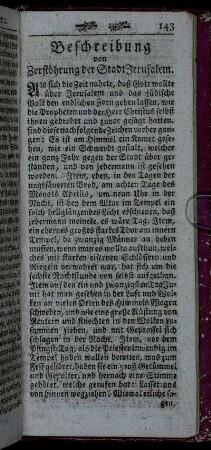 143
Beschreibung
von
Zerstöhrung der Stadt Jerusalem.
Als sich die Zeit nahete, daß Gott wollte
über Jerusalem und das jüdische
Volk den endlichen Zorn gehen lassen, wie
die Propheten und der Herr Christus selbst
ihnen gedrohet und zuvor gesagt hatten,
sind diese nachfolgende Zeichen vorher gan-
gen: Es ist am Himmel ein Komet gese-
hen, wie ein Schwerdt gestalt, welcher
ein ganz Jahr gegen der Stadt über ge-
standen, und von jedermann ist gesehen
worden. Item, eben, in den Tagen der
ungesäuerten Brod, am achten Tage des
Monats Aprilis, um neun Uhr in der
Nacht, ist bey dem Altar im Tempel ein
solch hellglänzendes Licht erschienen, daß
jedermann meinete, es wäre Tag. Item,
ein ehernes groß starkes Thor am innern
Tempel, da zwanzig Männer an heben
mußten, wenn man es wollte aufthun, wel-
ches mit starken eisernen Schlössern und
Riegeln verwahret war, hat sich um die
sechste Nachtstunde von selbst aufgethan.
Item auf den ein und zwanzigsten Tag Junii
hat man gesehen in der Luft und Wol-
ken an vielen Orten des Himmels Wagen
schweben, und wie eine große Rüstung von
Reutern und Knechten in den Wolken zu-
sammen ziehen, und mit Geprassel sich
schlagen in der Nacht. Item, vor dem
Pfingst-Tag, als die Priester inwendig im
Tempel haben wollen bereiten, was zum
Fest gehöret, haben sie ein groß Getümmel
und Gepolter, und hernach eine Stimme
gehöret, welche gerufen hat: Lasset uns
von hinnen wegziehen. Wiewol etliche sa-
gen,